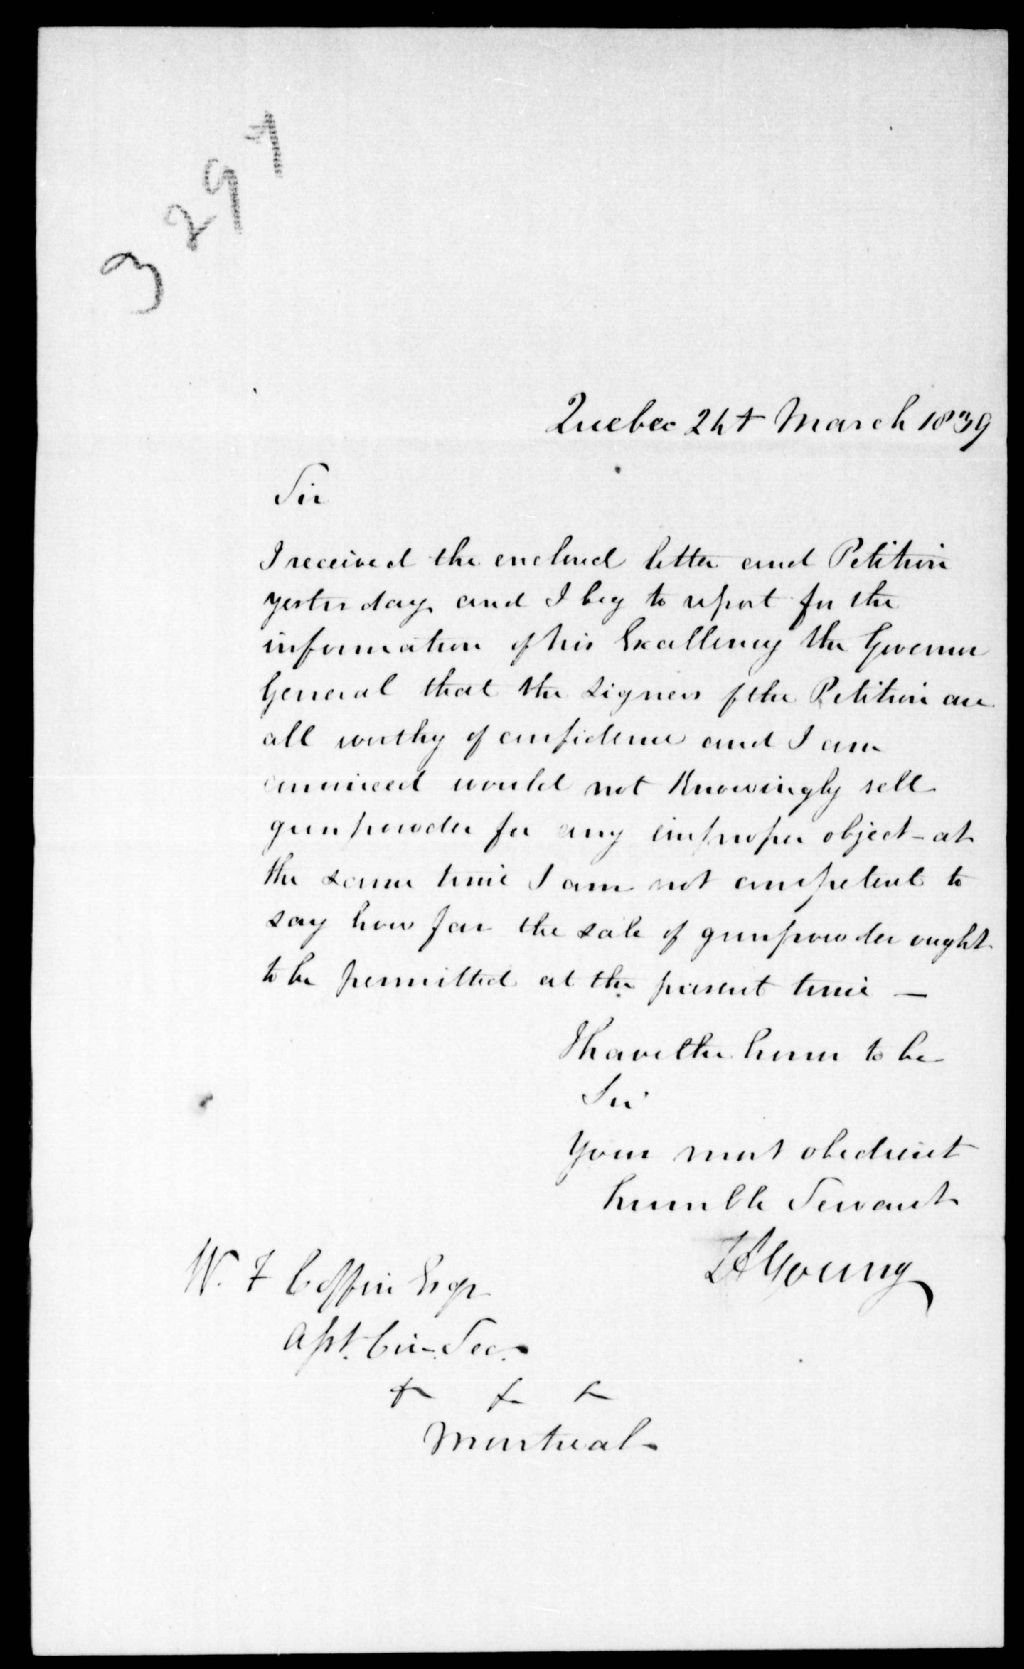 3297
Quebec 24t March 1839
Sir
I received the enclosed letter and Petition
yesterday and I beg to report for the
information of his Excellency the Governor
General that the signers of the Petition are
all worthy of confidence and I am
convinced would not knowingly sell
gunpowder for any improper object - at
the same time I am not competent to
say how far the sale of gunpowder ought
to be permitted at the present time —
I have the honor to be
Sir
Your most obedient
humble Servant
Young
W. F Coffin Esqr
Asst. Civ. Sec.
Montreal